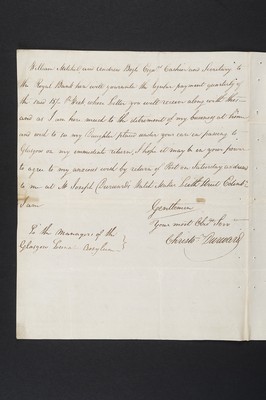 William Mitchell, and Andrew Bogle Esqrs. Cashier and Secretary to
the Royal Bank here will guarantee the regular payment quarterly of
the said £ whose Letter you will receive along with this
and as I am here much to the detriment of my business at home
and wish to see my Daughter placed under your care in passing to
Glasgow on my immediate return, I hope it may be in your power
to agree to my request and by return of Post on Saturday address
to me at Mr Joseph Durward's Watch Maker Leith Street Edinbr.
I am
Gentlemen
Your most Obt. Servt
Christr. Durward
To the Managers of the
Glasgow Lunatic Asylum }